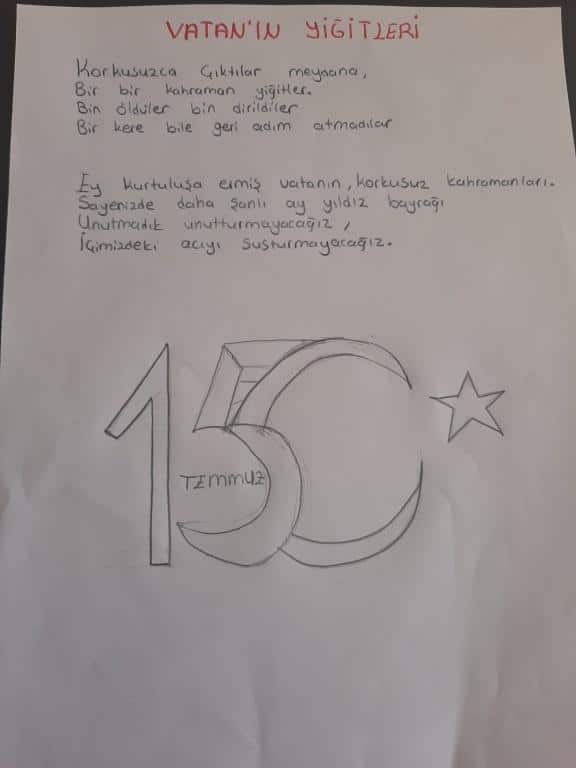 VATAN'IN YİĞİTLERİ
Korkusuzca Çıktılar meydana,
Bir bir kahraman yiğitler.
Bin öldüler bin dirildiler
Bir kere bile geri adım atmadılar
Ey kurtuluşa ermiş vatanın, korkusuz kahramanları.
Sayenizde daha şanlı ay yıldız bayrağı
Unutmadık unutturmayacağız,
İçimizdeki acıyı susturmayacağız.
15
TEMMUZ